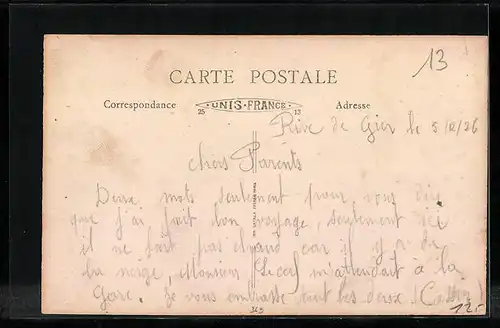 13
CARTE POSTALE
Correspondance UNIS-FRANCE Adresse
25 13
Rive de Gier le 5/12/26
chers Parents
Deux mots seulement pour vous dire
que j'ai fait bon voyage, seulement ici
il ne fait pas chaud car il y a de
la neige, Monsieur m'attendait à la
Gare. Je vous embrasse tout les deux
369
12.-